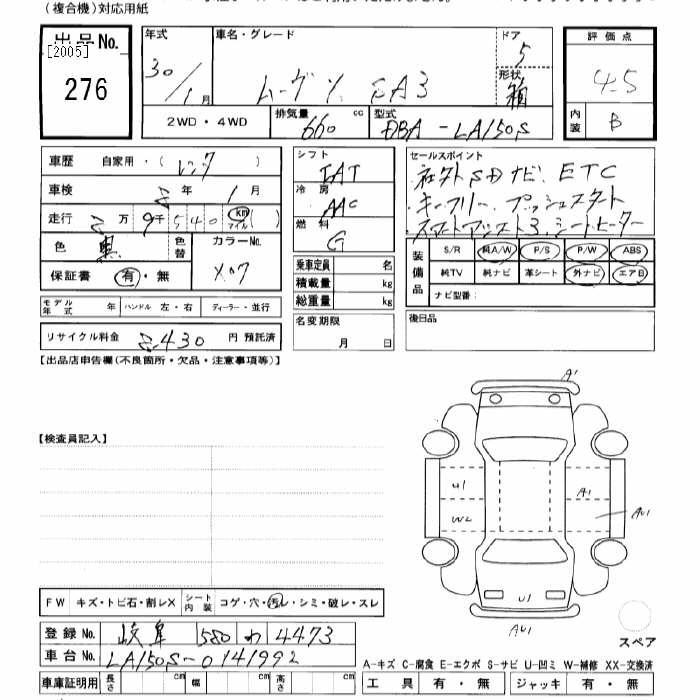 (複合機)対応用紙
出品No.
[2005]
276
年式
30/1月
車名・グレード
ムーヴ X SA3
ドア
5
形状
箱
評価点
4.5
内装
B
2WD・4WD
排気量
660 cc
型式
DBA-LA150S
車歴 自家用・(レンタ)
車検 2年1月
走行 2万9千540 km マイル ( )
色 黒
色替
カラーNo.
X07
保証書 有・無
モデル年式 年
ハンドル 左・右
ディーラー・並行
リサイクル料金 2430 円 預託済
シフト
FAT
冷房
AAC
燃料
G
乗車定員 名
積載量 kg
総重量 kg
名変期限
月 日
セールスポイント
社外SDナビ、ETC
・キーフリー、プッシュスタート
・スマートアシスト3、シートヒーター
装備品
S/R 純A/W P/S P/W ABS
純TV 純ナビ 革シート 外ナビ エアB
ナビ型番:
後日品
【出品店申告欄(不良箇所・欠品・注意事項等)】
【検査員記入】
A1
U1
A1
W2
AU1
U1
AU1
スペア
FW キズ・トビ石・割レX
シート内装 コゲ・穴・汚レ・シミ・破レ・スレ
登録No. 岐阜 580 わ 4473
車台No. LA150S-0141992
車庫証明用 長さ cm 幅 cm 高さ cm
A-キズ C-腐食 E-エクボ S-サビ U-凹ミ W-補修 XX-交換済
工具 有・無 ジャッキ 有・無